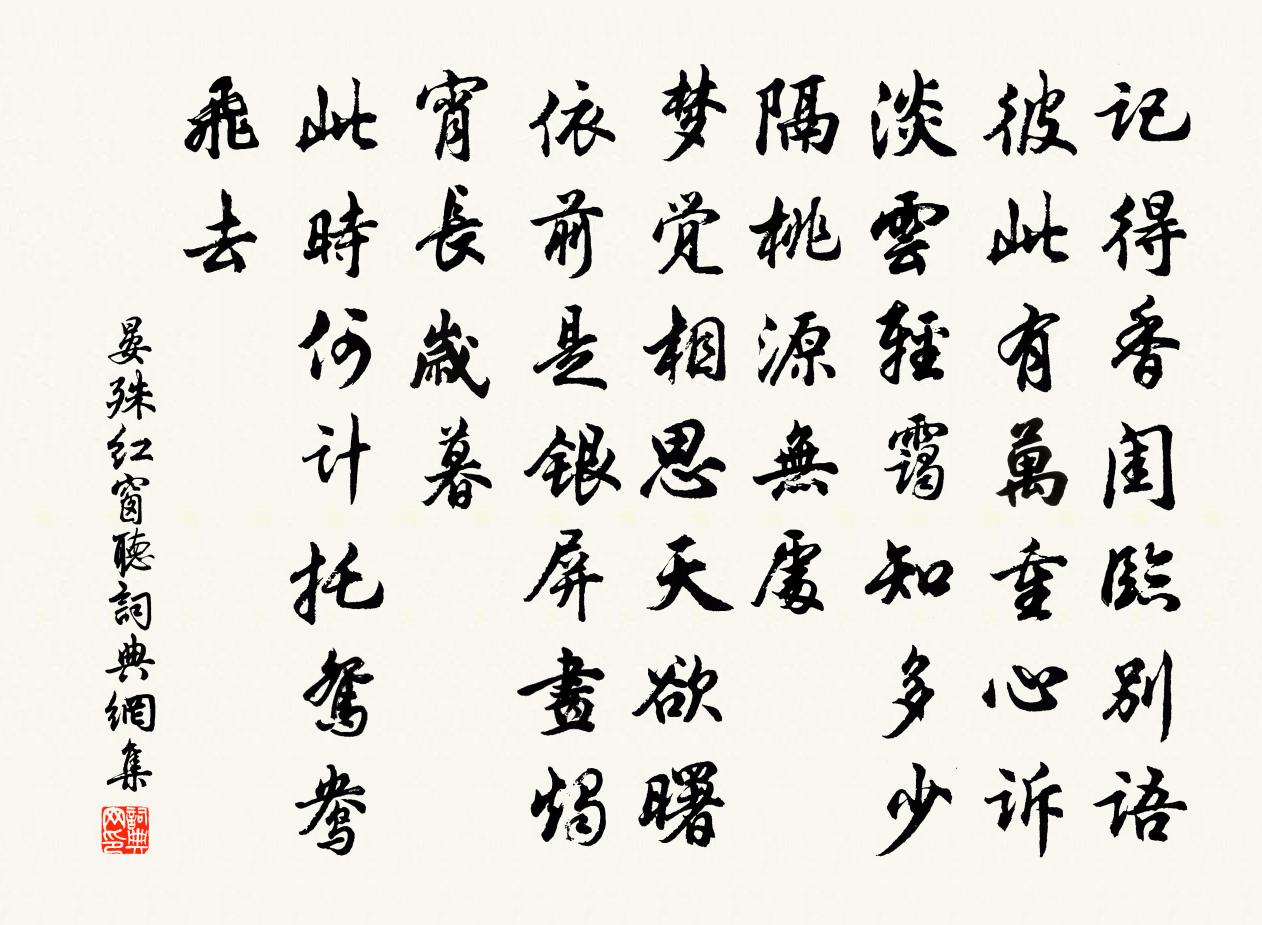 记得香闺臨别语
彼此有萬重心诉
淡雲輕靄知多少
隔桃源無處
梦觉相思天欲曙
依前是銀屏畫燭
宵長歲暮
此時何计托鸳鸯
飛去
晏殊红窗聽詞典網集
詞典网印